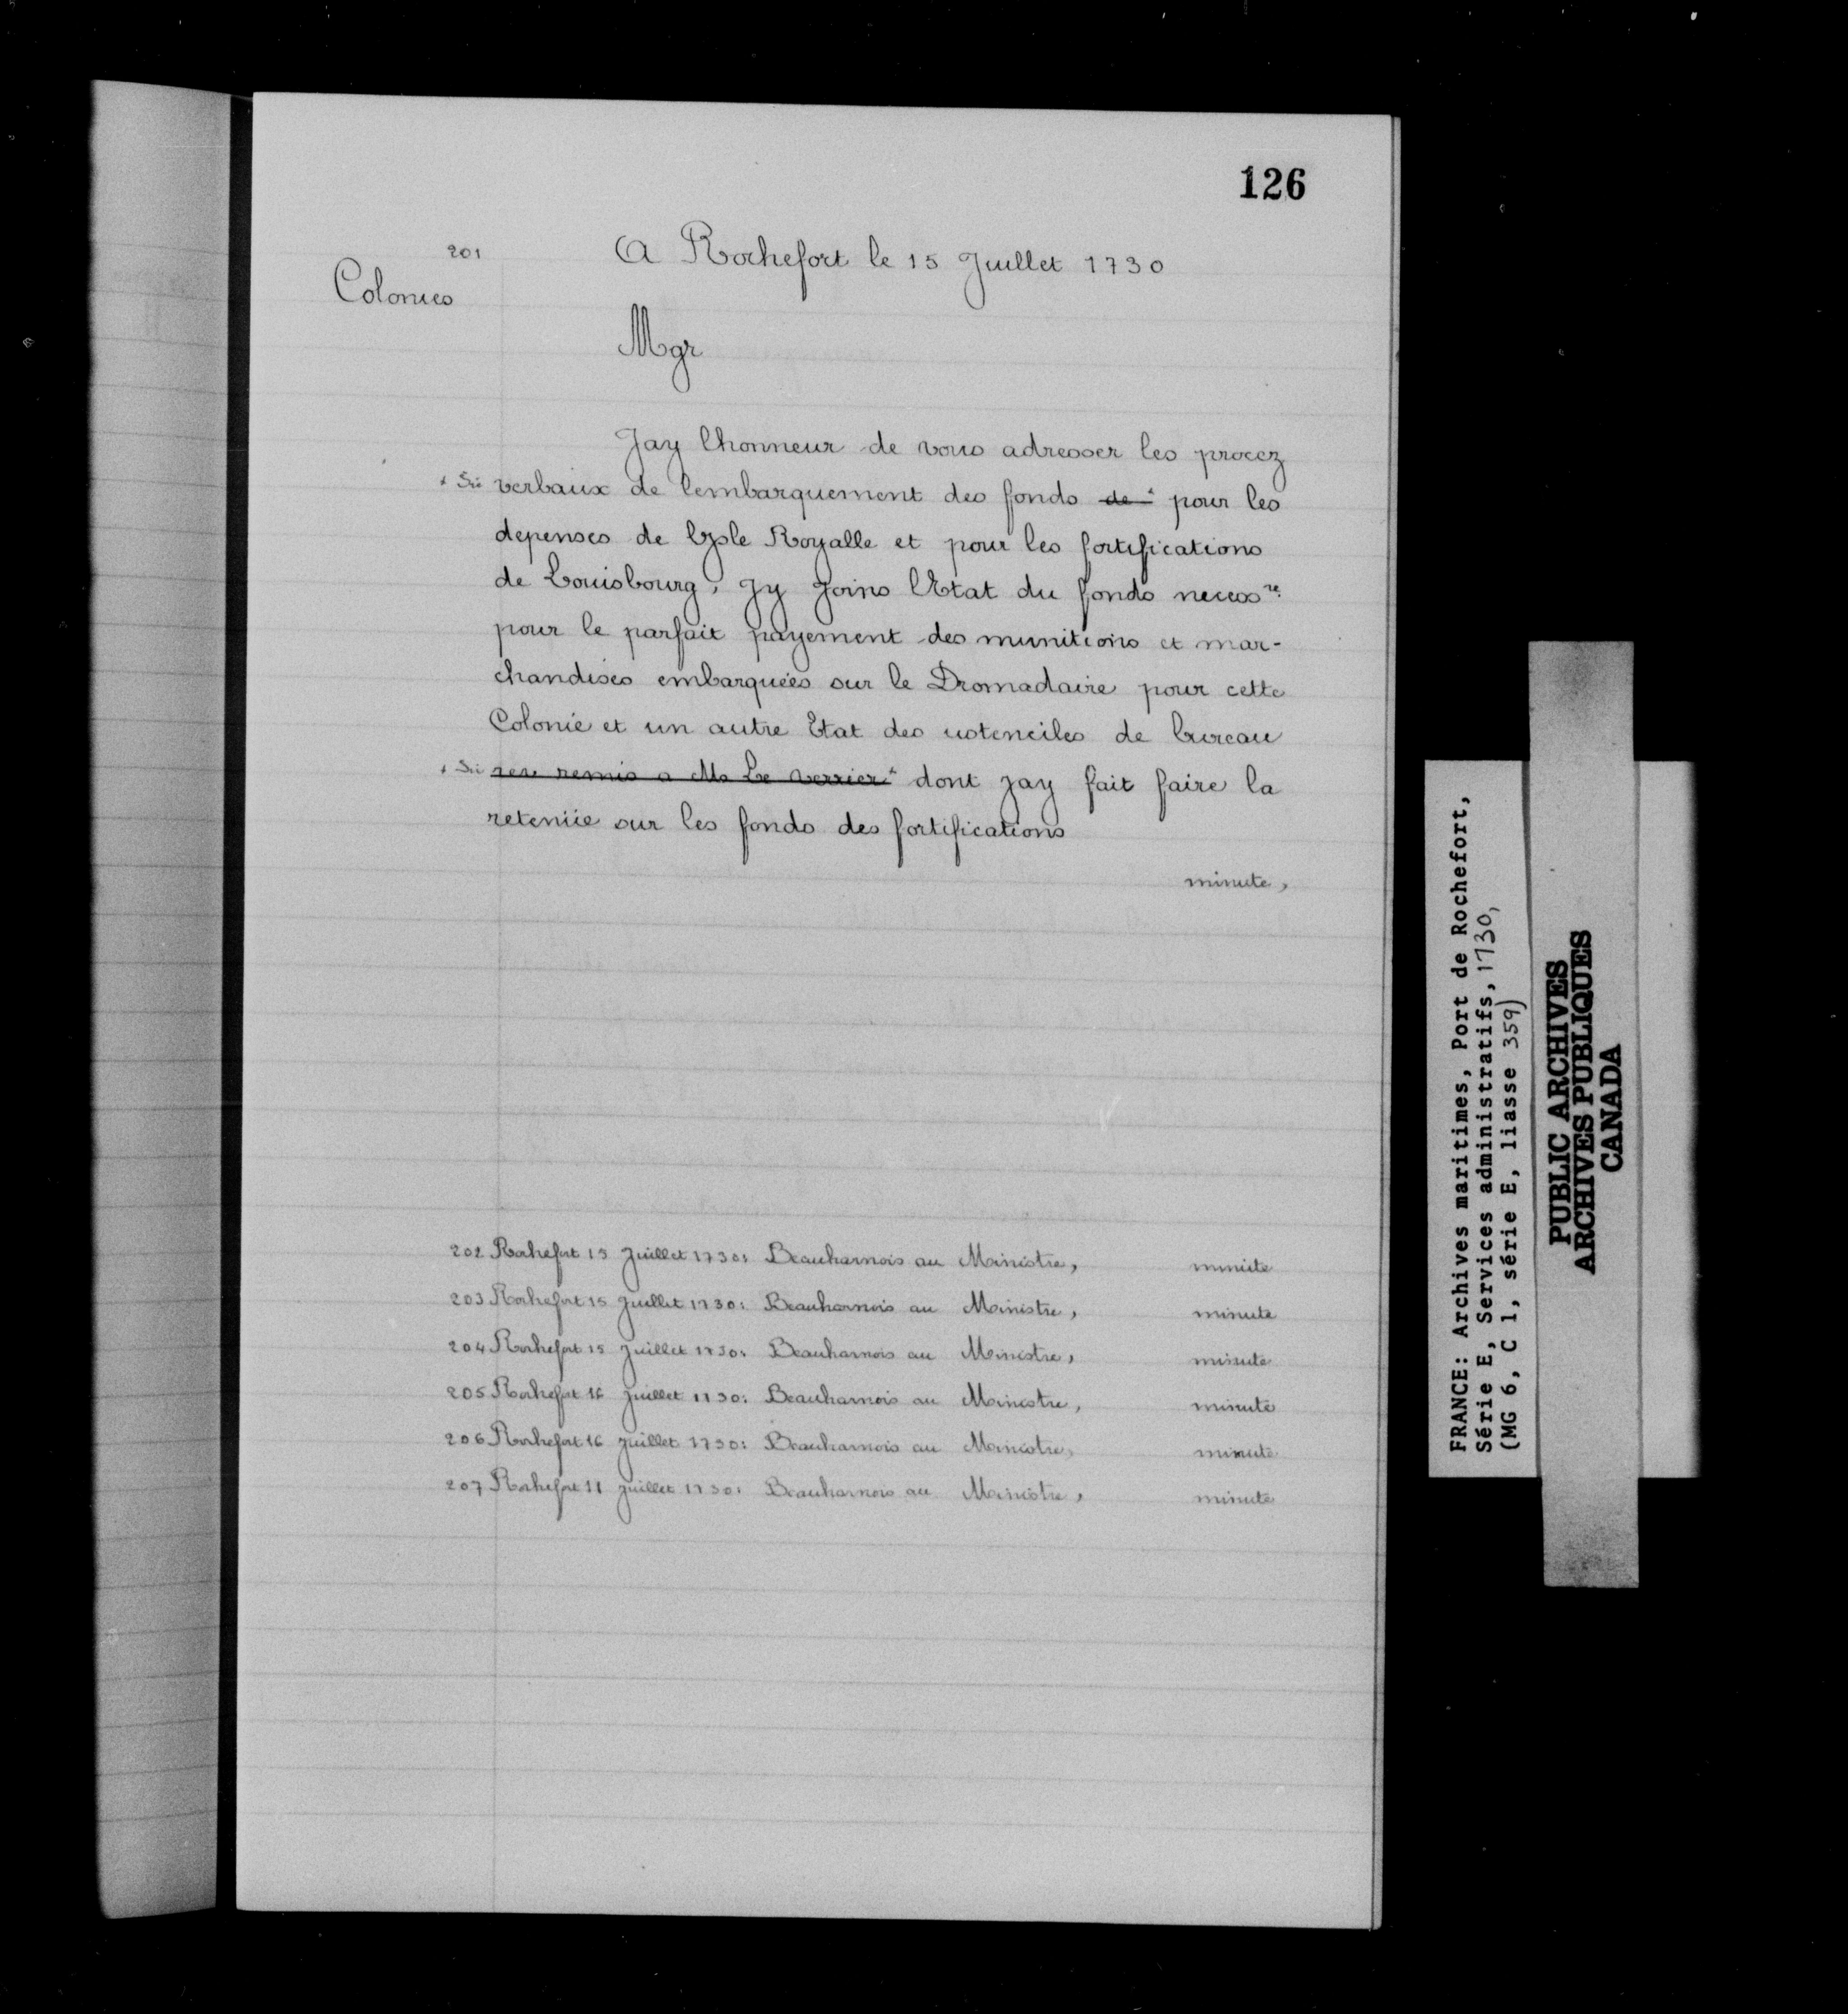 126
201
A Rochefort le 15 Juillet 1730
Colonies
Mgr
Jay lhonneur de vous adresser les procez
+ Sic verbaux de lembarquement des fonds de + pour les
depenses de lysle Royalle et pour les fortifications
de Louisbourg, Jy Joins lEtat du fonds necess.re
pour le parfait payement des munitions et mar-
chandises embarquées sur le Dromadaire pour cette
Colonie et un autre Etat des ustenciles de bureau
+ Sic remis a Mr Le Verrier + dont jay fait faire la
retenüe sur les fonds des fortifications
minute,
202 Rochefort 15 Juillet 1730: Beauharnois au Ministre, minute
203 Rochefort 15 Juillet 1730: Beauharnois au Ministre, minute
204 Rochefort 15 Juillet 1730: Beauharnois au Ministre, minute
205 Rochefort 16 Juillet 1730: Beauharnois au Ministre, minute
206 Rochefort 16 Juillet 1730: Beauharnois au Ministre, minute
207 Rochefort 11 Juillet 1730: Beauharnois au Ministre, minute
FRANCE: Archives maritimes, Port de Rochefort,
Série E, Services administratifs, 1730,
(MG 6, C 1, série E, liasse 359)
PUBLIC ARCHIVES
ARCHIVES PUBLIQUES
CANADA